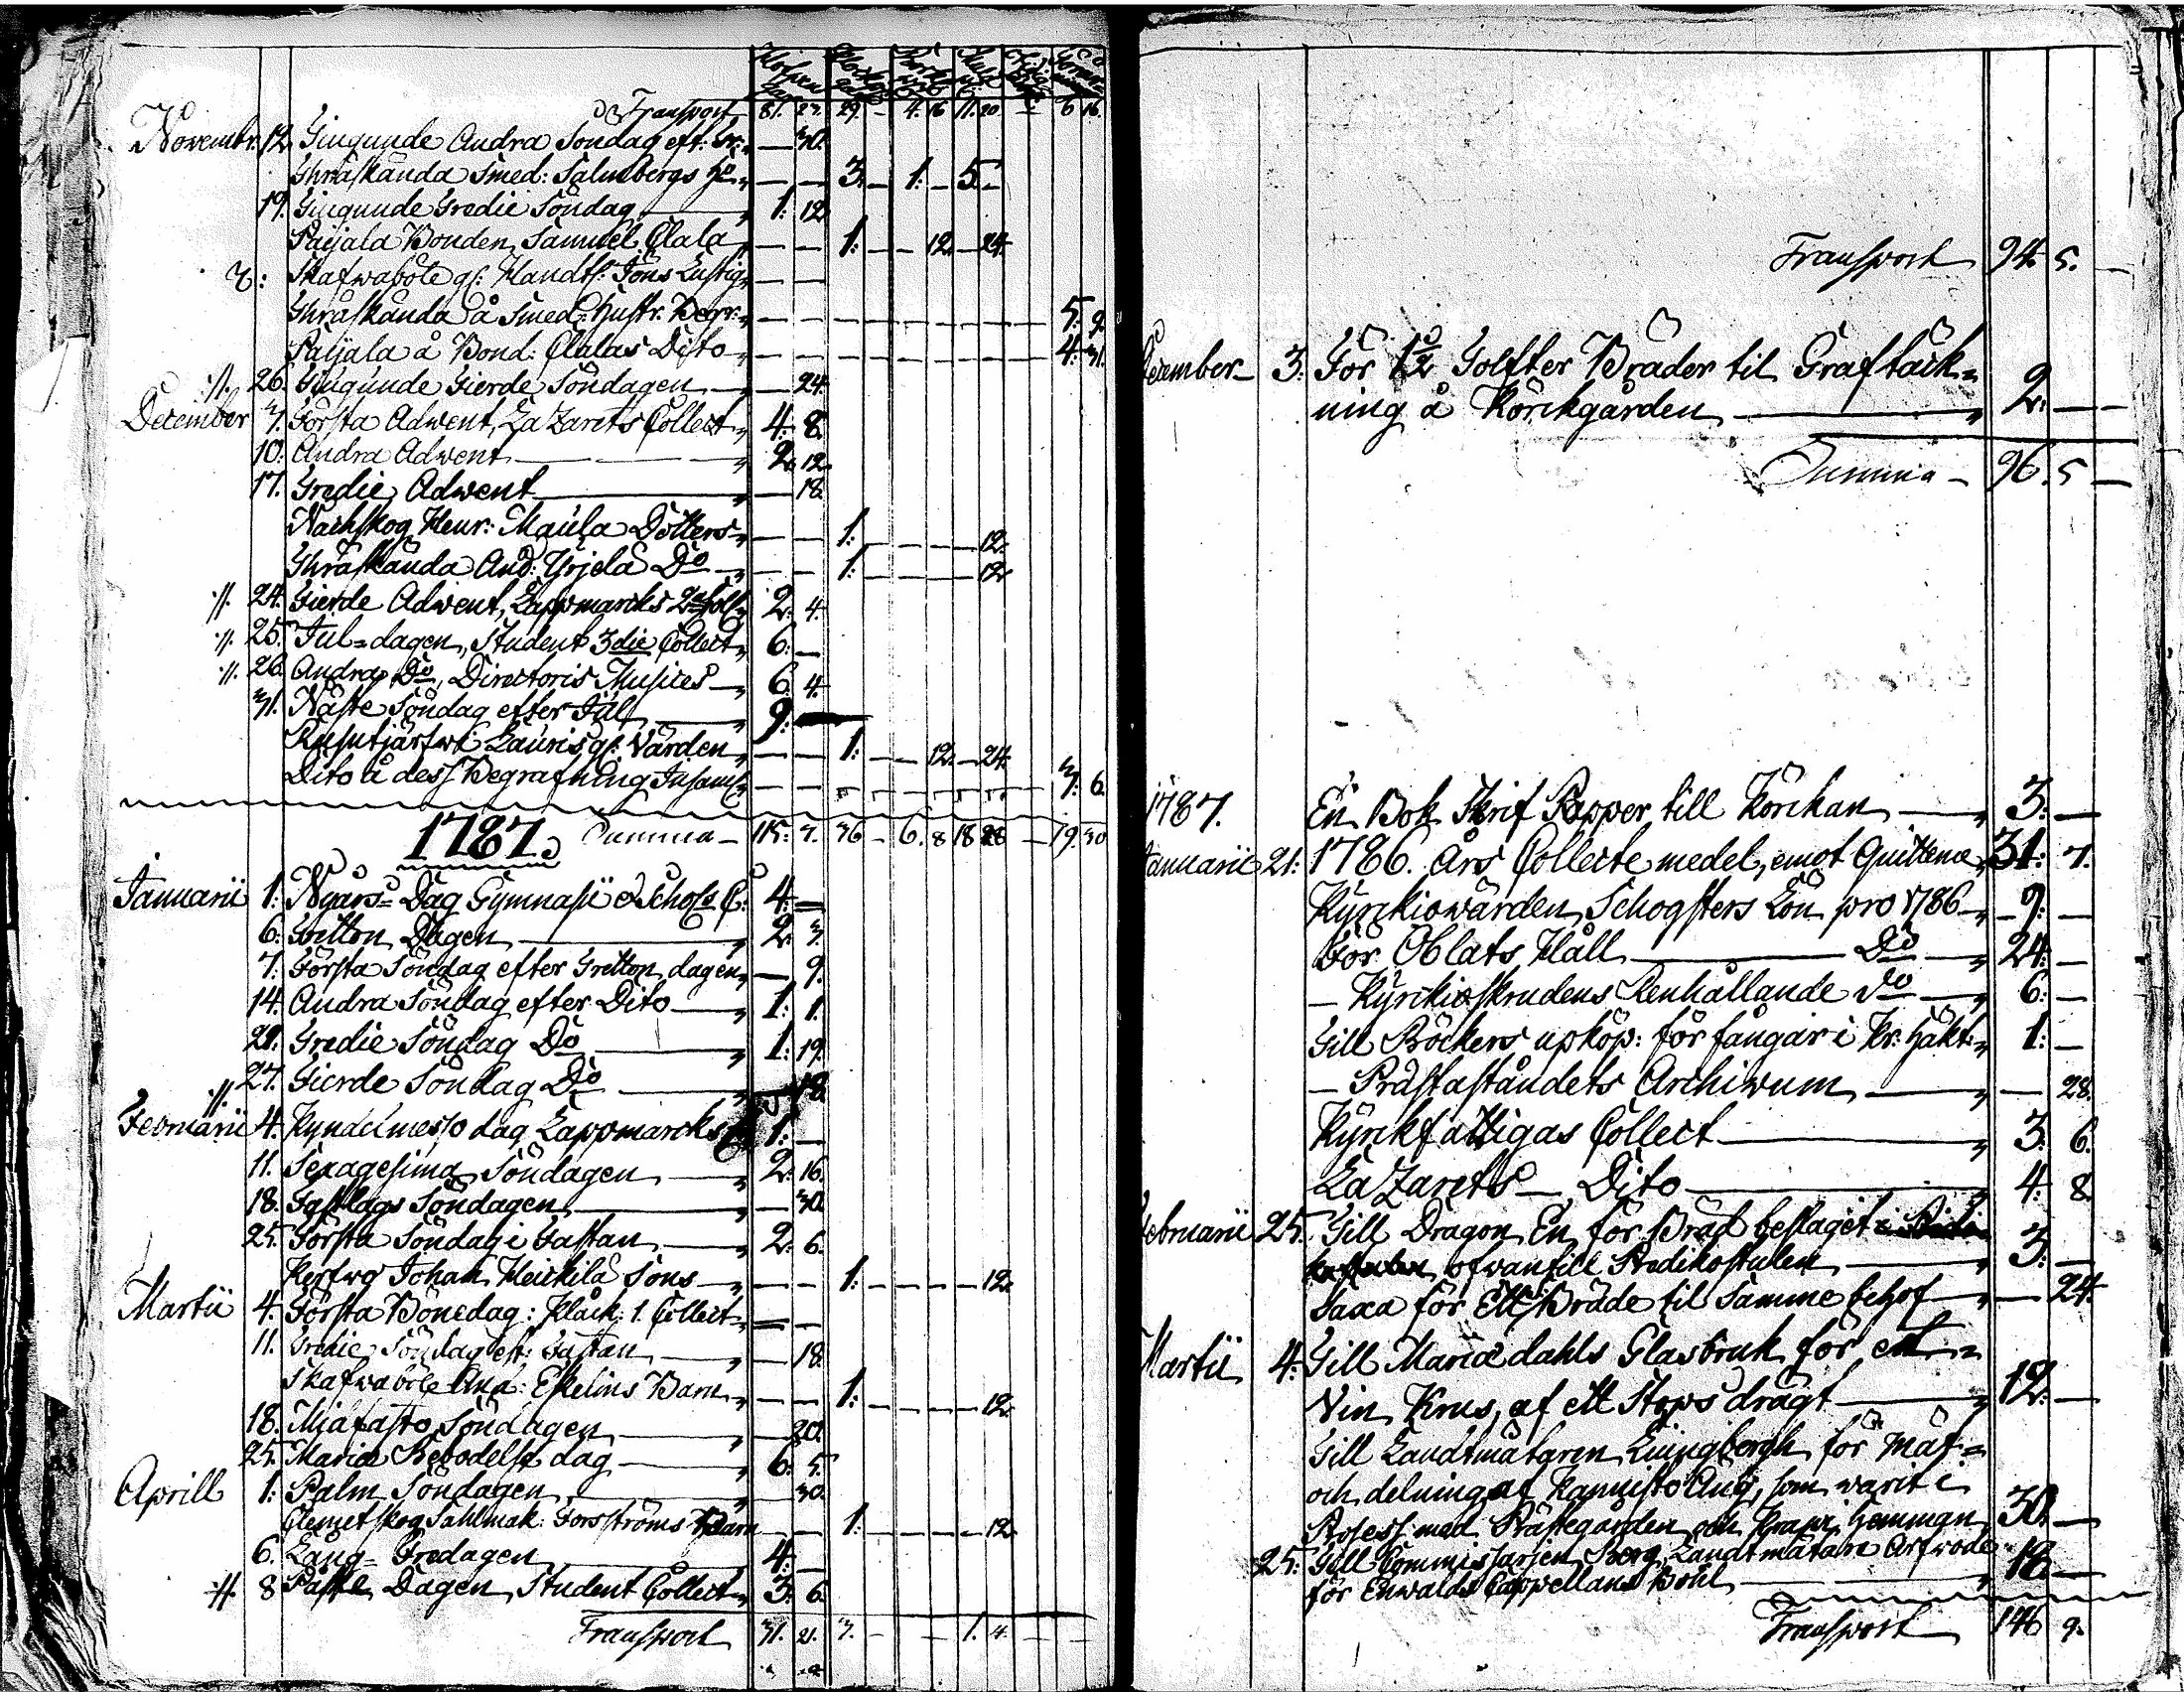 Transport 81. 23. 29. - 4. 16 11. 20 - 6 16.
Novembr. 12. Tiugunde Andra Söndag eft: Tr: - 30.
Thräskända Smed: Salmbergs H - - 3. - 1. - 5. -
19. Tiugunde Tredie Söndag 1: 12.
Paijala Bonden Samuel Clala - - 1: - - 12. - 24.
Skafwaböle gl: Handtl: Jöns Lustig - -
Thräskända å Smed: Hustr: Begr: 5: 9.
Paijala å Bond: Clalas Dito 4: 31.
//. 26. Tiugunde Fierde Söndagen - 24.
December 3. Första Adwent, LaZarets Collect 4: 8.
10. Andra Adwent 2. 12.
17. Tredie Adwent - 18.
Nackskog Henr: Maula Dotters - - 1: - - - - 12.
Thräskända And: Yrjelä Do - - 1: - - - - 12.
//. 24. Fierde Adwent, Lappmarcks 2 Coll 2. 4.
//. 25. Jul=dagen, Student 3die Collect 6. -
//. 26. Andra Do, Directoris Musices 6. 4.
31. Näste Söndag efter Jul 9:
Rusutjärfwi Lauris gl: Värden - - 1: - - 12. - 24.
Dito å dess Begrafning Insaml 3: 6.
1787. Summa - 115: 3. 36 - 6. 8 18 28 - 19. 30
Januarii 1: Nyårs Dag Gymnasii & Schols C: 4: -
6: Tretton Dagen 2. 3.
7. Första Söndag efter Tretton dagen - 9.
14. Andra Söndag efter Dito 1: 1.
21. Tredie Söndag Do 1: 19.
//. 27. Fierde Söndag Do - 18.
Februarii 4. Kyndelmesso dag Lappmarcks 1: -
11. Sexagesima Söndagen 2: 16.
18. Fastlags Söndagen - 30.
25. Första Söndag i Fastan 2. 6.
Kerfwo Johan Heickilä Sons - - 1: - - - - 12.
Martii 4. Första Bönedag: Klåck: 1. Collect - -
11. Tredie Söndag eft: Fastan - 18.
Skafwaböle And: Ekelins Barn - - 1: - - - - 12.
18. Midfasto Söndagen - 20.
25. Mariæ Bebodelse dag 6. 5.
Aprill 1: Palm Söndagen - 30.
Clemetskog Sahlmak: Forsströms Barn - - 1: - - - - 12.
6. Lång=Fredagen 4: -
//. 8 Påske Dagen, Student Collect 3: 6.
Transport 31. 21. 3. - - - 1. 4. - -
Transport 94. 5. -
December 3: För 1/2 Tolfter Bräder til Graftäck=
ning å Körckgården 2. -
Summa - 96. 5 -
1787. En Bok Skrif Papper till Körckan 3: -
Januarii 21: 1786. Års Collecte medel, emot Quittence 31: 7.
Kyrckiowärden Schogsters Lön pro 1786 9: -
För Oblats Håll Do 24: -
- Kyrckioskrudens Renhållande Do 6: -
Till Böckers upköp: för fångar i Kr: Häkt: 1: -
- Prästaståndets Archivum - 28.
Kyrckfattigas Collect 3: 6.
LaZarets Dito 4: 8.
Februarii 25. Till Dragon En för Bräd beslaget
ofwantill Predikostulen 3: -
Saxa för Ett Bräde til samme behof - 24.
Martii 4: Till Mariædahls Glasbruk för ett
Vin Krus, af ett Stops drägt 12: -
Till Landtmätaren Liungbergh för Mät=
och delning af Kannisto Äng, som warit i
Process med Prästegården och Hemman 30 -
25. Till Commissarien Berg Landtmätare Arfwode
för Enwalds Cappellans Bohl 18. -
Transport 146 9.